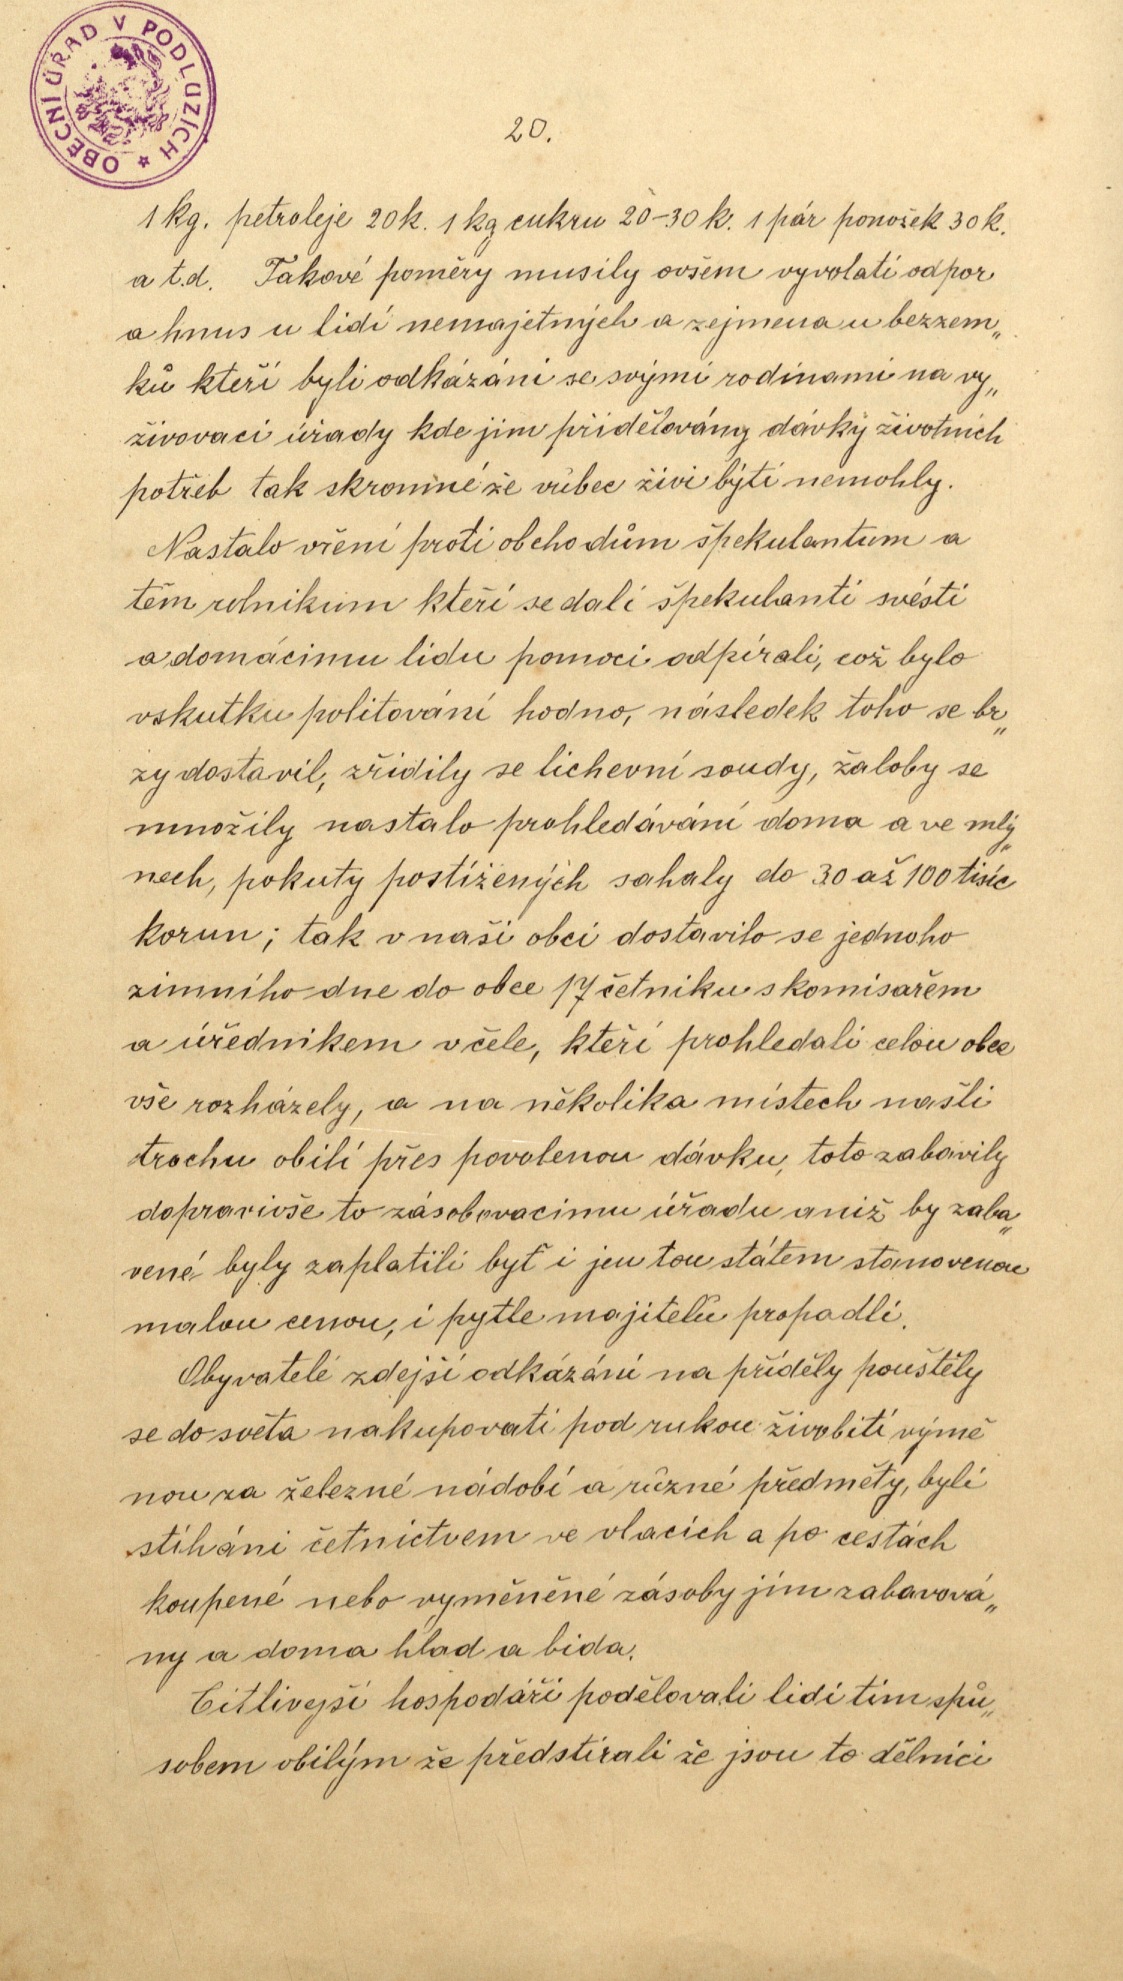 OBECNÍ ÚŘAD V PODLUZÍCH
20.
1 kg. petroleje 20 k. 1 kg cukru 20-30 k. 1 pár ponožek 30 k.
a t.d. Takové poměry musily ovšem vyvolati odpor
a hnus u lidí nemajetných a zejmena u bezzem„
ků kteří byli odkázáni se svými rodinami na vy„
živovací úřady kde jim přidělovány dávky životních
potřeb tak skromné že vůbec živi býti nemohly.
Nastalo vření proti obchodům špekulantum a
těm rolnikum kteří se dali špekulanti svésti
a domácimu lidu pomoci odpírali, což bylo
vskutku politování hodno, následek toho se br„
zy dostavil, zřidily se lichevní soudy, žaloby se
množily nastalo prohledávání doma a ve mlý„
nech, pokuty postižených sahaly do 30 až 100 tisíc
korun; tak v naši obci dostavilo se jednoho
zimního dne do obce 17 četniku s komisařem
a úřednikem v čele, kteří prohledali celou obec
vše rozházely, a na několika místech našli
trochu obilí přes povolenou dávku, toto zabavily
dopravivše to zásobovacimu úřadu aniž by zaba„
vené byly zaplatili byť i jen tou státem stanovenou
malou cenou, i pytle majitelů propadli.
Obyvatelé zdejší odkázáni na příděly pouštěly
se do světa nakupovati pod rukou živobití výmě
nou za železné nádobí a různé předměty, byli
stíháni četnictvem ve vlacích a po cestách
koupené nebo vyměněné zásoby jim zabavová„
ny a doma hlad a bida.
Citlivejší hospodáři podělovali lidi tím spů„
sobem obilým že předstírali že jsou to dělnici